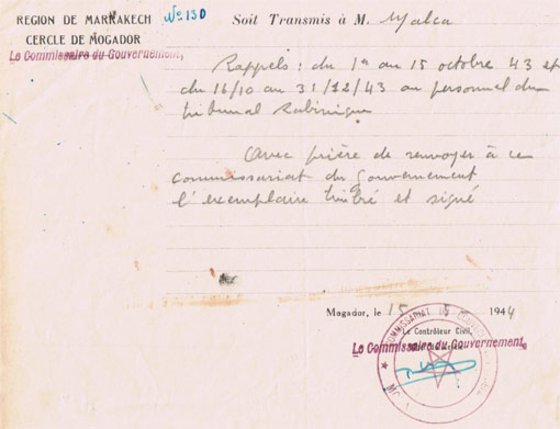 REGION DE MARRAKECH No. 130
CERCLE DE MOGADOR
Le Commissaire du Gouvernement,
Soit Transmis à M. Malca
Rappels : du 1er au 15 octobre 43 et
du 16/10 au 31/12/43 au personnel du
tribunal Rabinique
Avec prière de renvoyer à ce
commissariat du gouvernement
l'exemplaire timbré et signé
Mogador, le 15 5 1944
Le Contrôleur Civil,
Le Commissaire du Gouvernement,
COMMISSARIAT DU